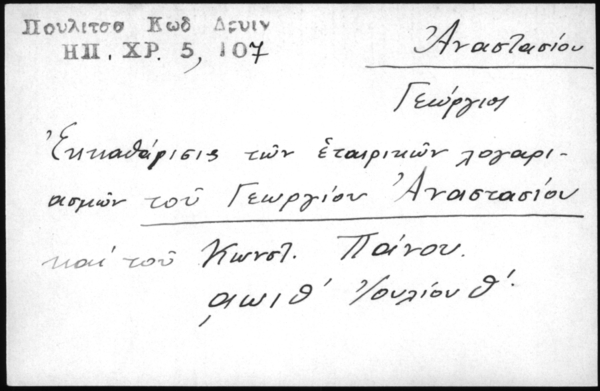 Πουλιτσα Κωδ Δρυιν
ΗΠ. ΧΡ. 5, 107
Ἀναστασίου
Γεώργιος
Ἐκκαθάρισις τῶν ἑταιρικῶν λογαρι-
ασμῶν τοῦ Γεωργίου Ἀναστασίου
καί τοῦ Κωνστ. Παίνου.
͵αωιθ' Ἰουλίου θ'.